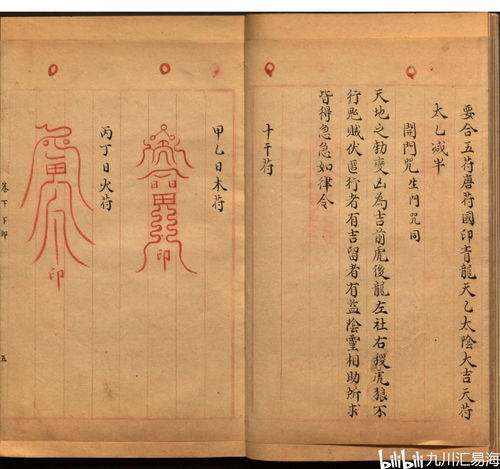 要合五符唐符國印青龍天乙太陰大吉天符
太乙減半
開門咒 生門咒同
天地之勅變凶為吉前虎後龍左社右稷虎狼不
行兇賊伏匿行者有吉留者有益陰靈相助所求
皆得急急如律令
十干符
甲乙日木符
印
丙丁日火符
印
卷下下
五
bilibili 九川汇易海